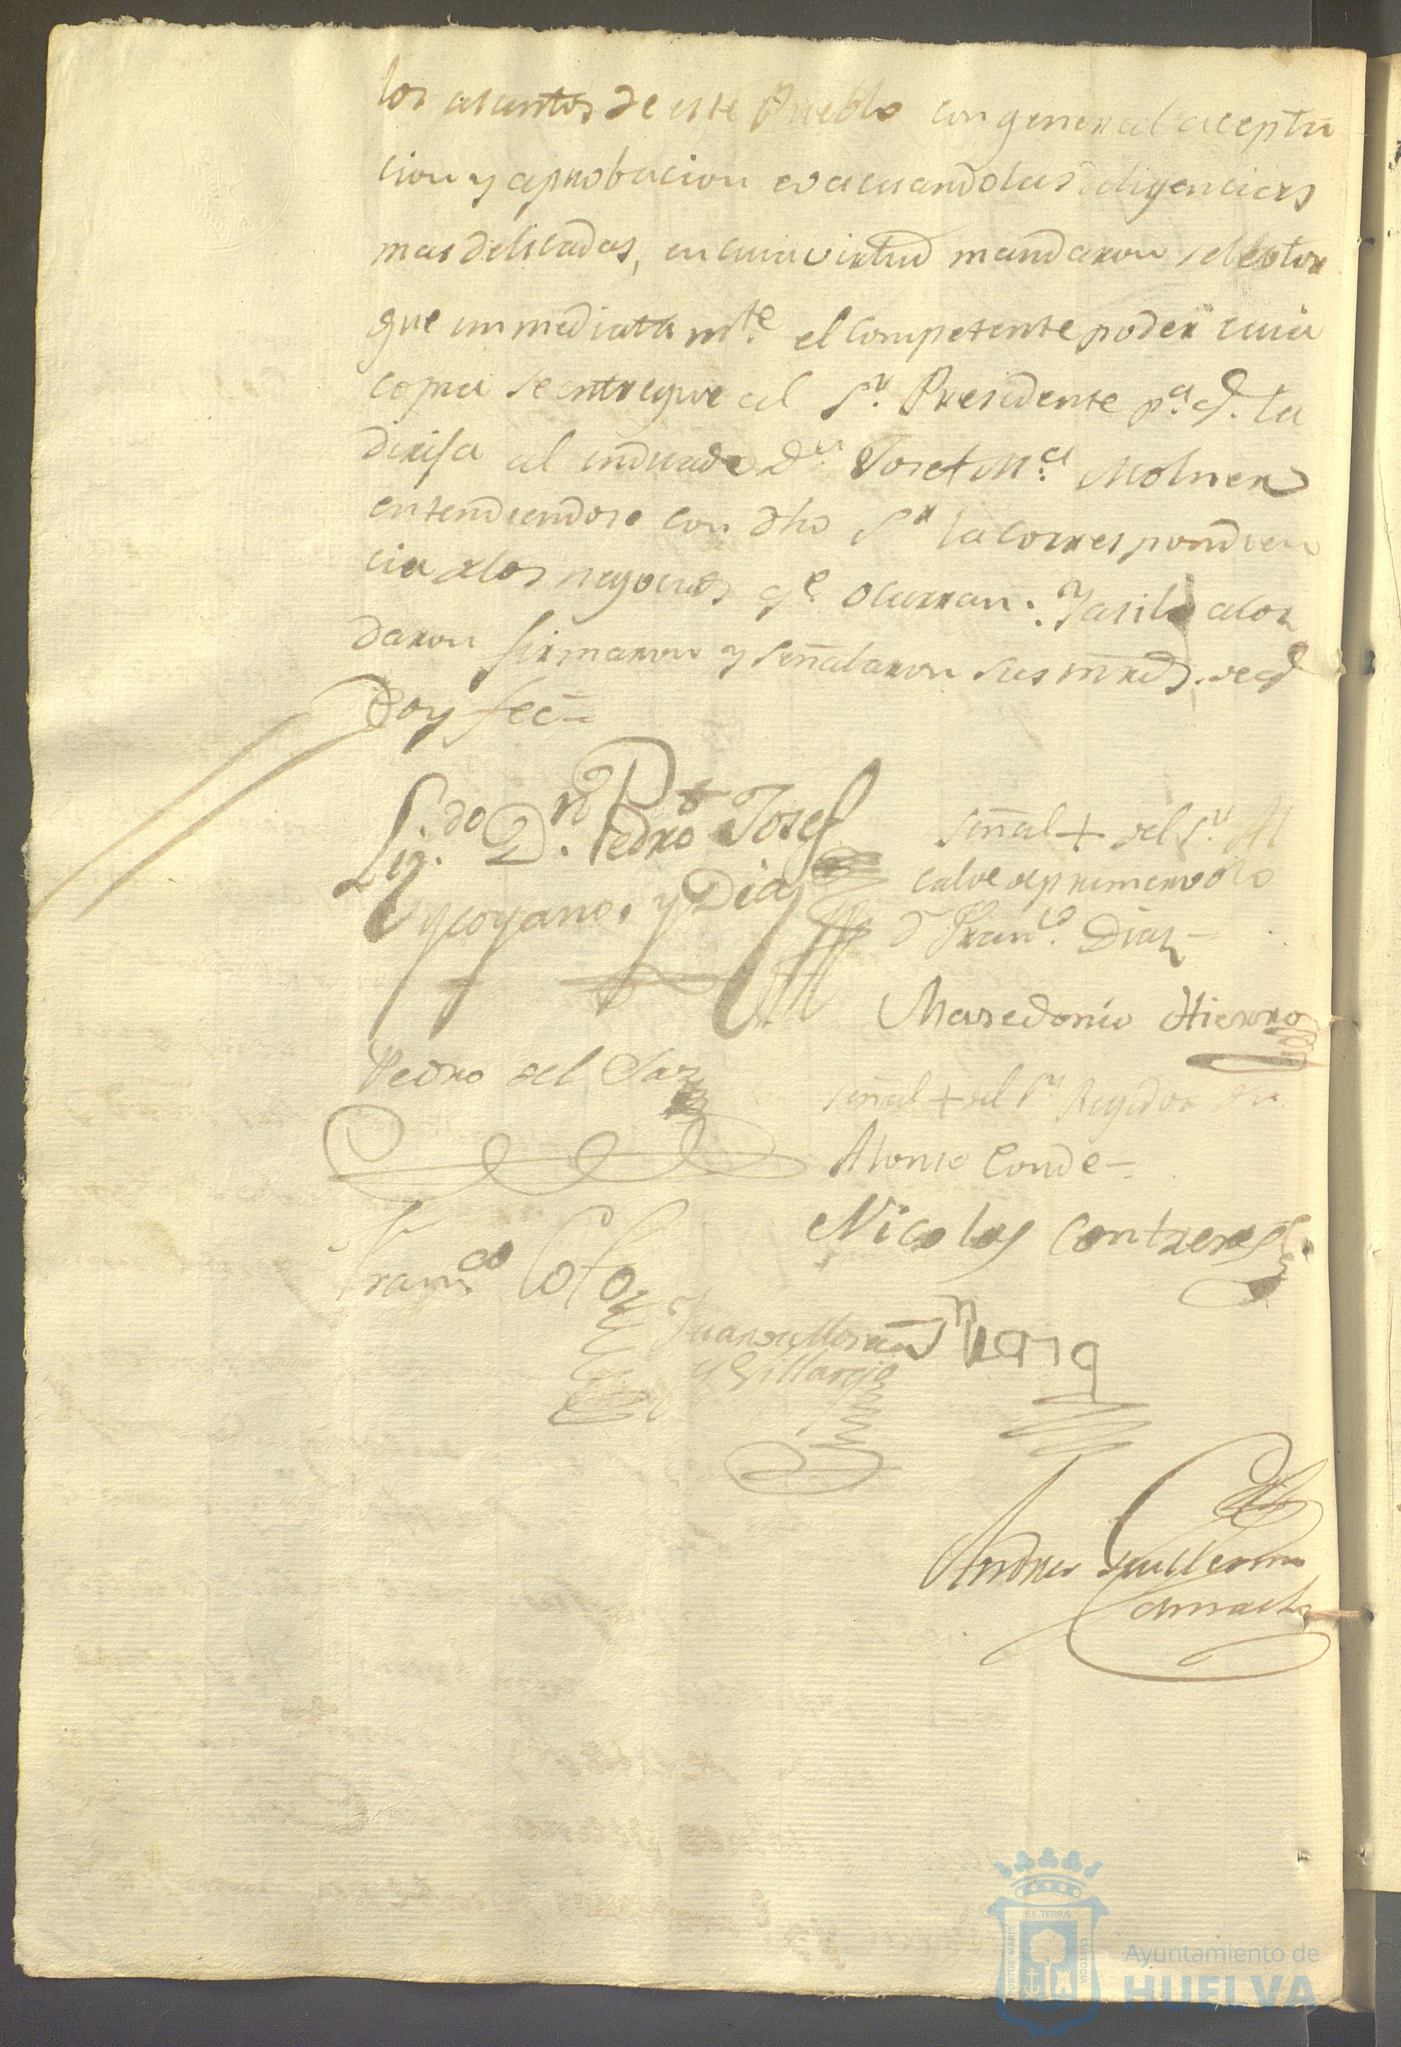 los asuntos de este Pueblo con general acepta
cion y aprobacion evacuando las diligencias
mas delicadas, en cuia virtud mandaron se le otor
gue inmediatamte. el competente poder cuia
copia se entregue al Sr. Presidente pa. q. la
dirija al indicado Dn. Josef Ma. Molner
entendiendose con dho Sr la correspondien
cia de los negocios qe ocurran. Y asi lo acor
daron firmaron y señalaron sus mrds. de q
Doy fee=
Lizdo. Dn. Pedro Josef
y Diaz
señal + del Sr. Al
calde de primer voto
Dn Franco. Diaz=
Masedonio Hierro
Pedro del Saz
señal + del Sr Regidor Dn
Alonso Conde=
Nicolas Contreras
Franco Coto
Juan de Mora
y Villarejo
Andres Guillermo
Camacho
PORTUS MARIS
ET TERRÆ
CUSTODIA
Ayuntamiento de
HUELVA